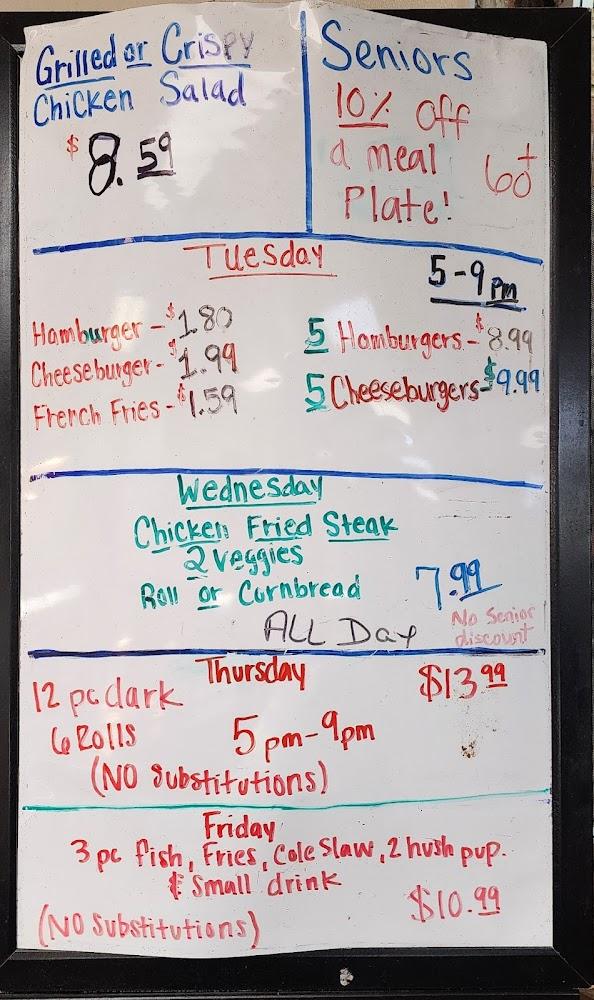 Grilled or Crispy
Chicken Salad
$8.59
Seniors
10% off
a meal
Plate!
60+
Tuesday
5-9pm
Hamburger - $1.80
Cheeseburger- $1.99
French Fries - $1.59
5 Hamburgers - $8.99
5 Cheeseburgers- $9.99
Wednesday
Chicken Fried Steak
2 veggies
Roll or Cornbread
7.99
ALL Day
No Senior
discount
Thursday
12 pc dark
$13.99
6 Rolls
5pm-9pm
(NO Substitutions)
Friday
3 pc fish, Fries, Cole Slaw, 2 hush pup.
& Small drink
$10.99
(NO Substitutions)